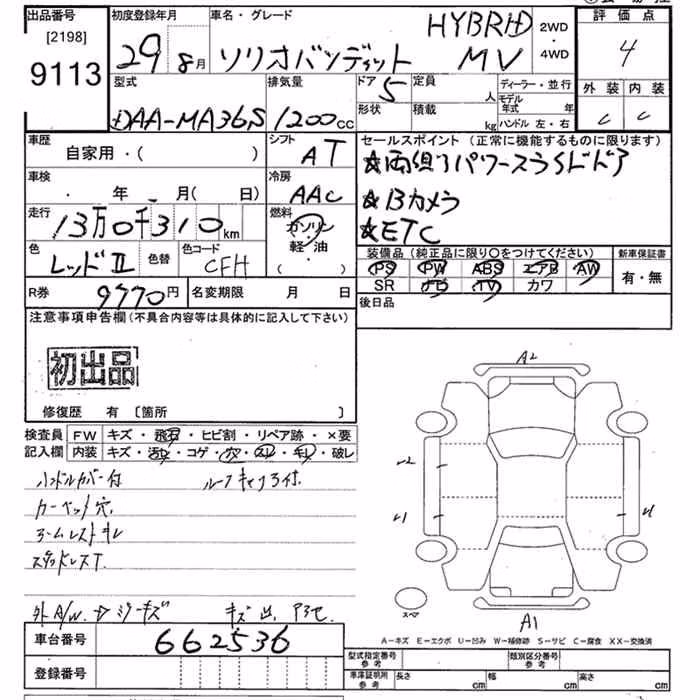 出品番号 初度登録年月 車名・グレード HYBRID 2WD・4WD 評価点
[2198] 9113 29 8月 ソリオバンディット MV 4
型式 排気量 ドア 5 定員 人 ディーラー・並行 外装 内装
DAA-MA36S 1200cc 形状 積載 kg モデル年式 年 C C
ハンドル 左・右
車歴 シフト セールスポイント(正常に機能するものに限ります)
自家用・( ) AT ☆両側パワースライドドア
車検 冷房 ☆Bカメラ
・ 年 ・ 月( 日) AAC ☆ETC
走行 燃料
13万0千310km ガソリン
軽油
( )
色 色替 色コード 装備品(純正品に限り○をつけてください) 新車保証書
レッドII CFH PS PW ABS エアB AW 有・無
SR ナビ TV カワ
R券 9770円 名変期限 月 日 後日品
注意事項申告欄(不具合内容等は具体的に記入して下さい)
初出品
A2
修復歴 有 〔箇所 〕
検査員 FW キズ・飛石・ヒビ割・リペア跡・×要
記入欄 内装 キズ・汚レ・コゲ・穴・スレ・キレ・破レ
ハンドルカバー付 ルーフキャリア付
カーペット穴
アームレストキレ
スタッドレスT.
スペア
外A/W
A1
車台番号 662536
A-キズ E-エクボ U-凹み W-補修跡 S-サビ C-腐食 XX-交換済
登録番号
型式指定番号 参考 類別区分番号 参考
車庫証明用 参考 長さ cm 幅 cm 高さ cm